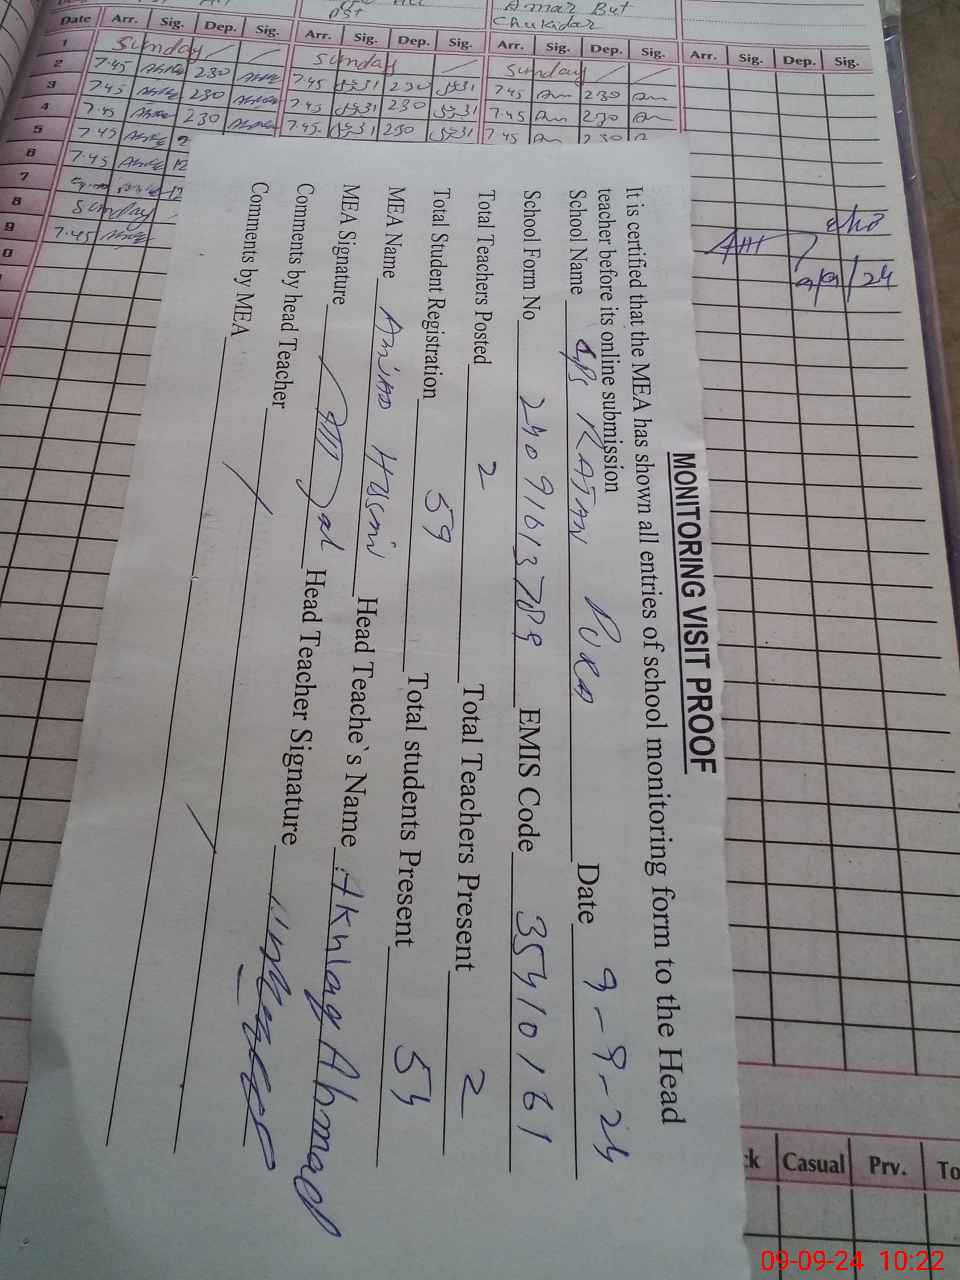 Amar But
Chukidar
Date Arr. Sig. Dep. Sig. Arr. Sig. Dep. Sig. Arr. Sig. Dep. Sig. Arr. Sig. Dep. Sig.
1 Sunday Sunday Sunday
2 7.45 230 7.45 230 7.45 230
3 7.45 230 7.45 230 7.45 230
4 7.45 230 7.45 230 7.45 230
5 7.45
6 7.45 12
7 12
8 Sunday
9 7.45
9/9/24
MONITORING VISIT PROOF
It is certified that the MEA has shown all entries of school monitoring form to the Head
teacher before its online submission
School Name GPS RATAN PURA Date 9-9-24
School Form No 24091613789 EMIS Code 35410161
Total Teachers Posted 2 Total Teachers Present 2
Total Student Registration 59 Total students Present 54
MEA Name Amjad Hussain Head Teache`s Name Akhlaq Ahmad
MEA Signature Head Teacher Signature
Comments by head Teacher
Comments by MEA
ck Casual Prv. To
09-09-24 10:22